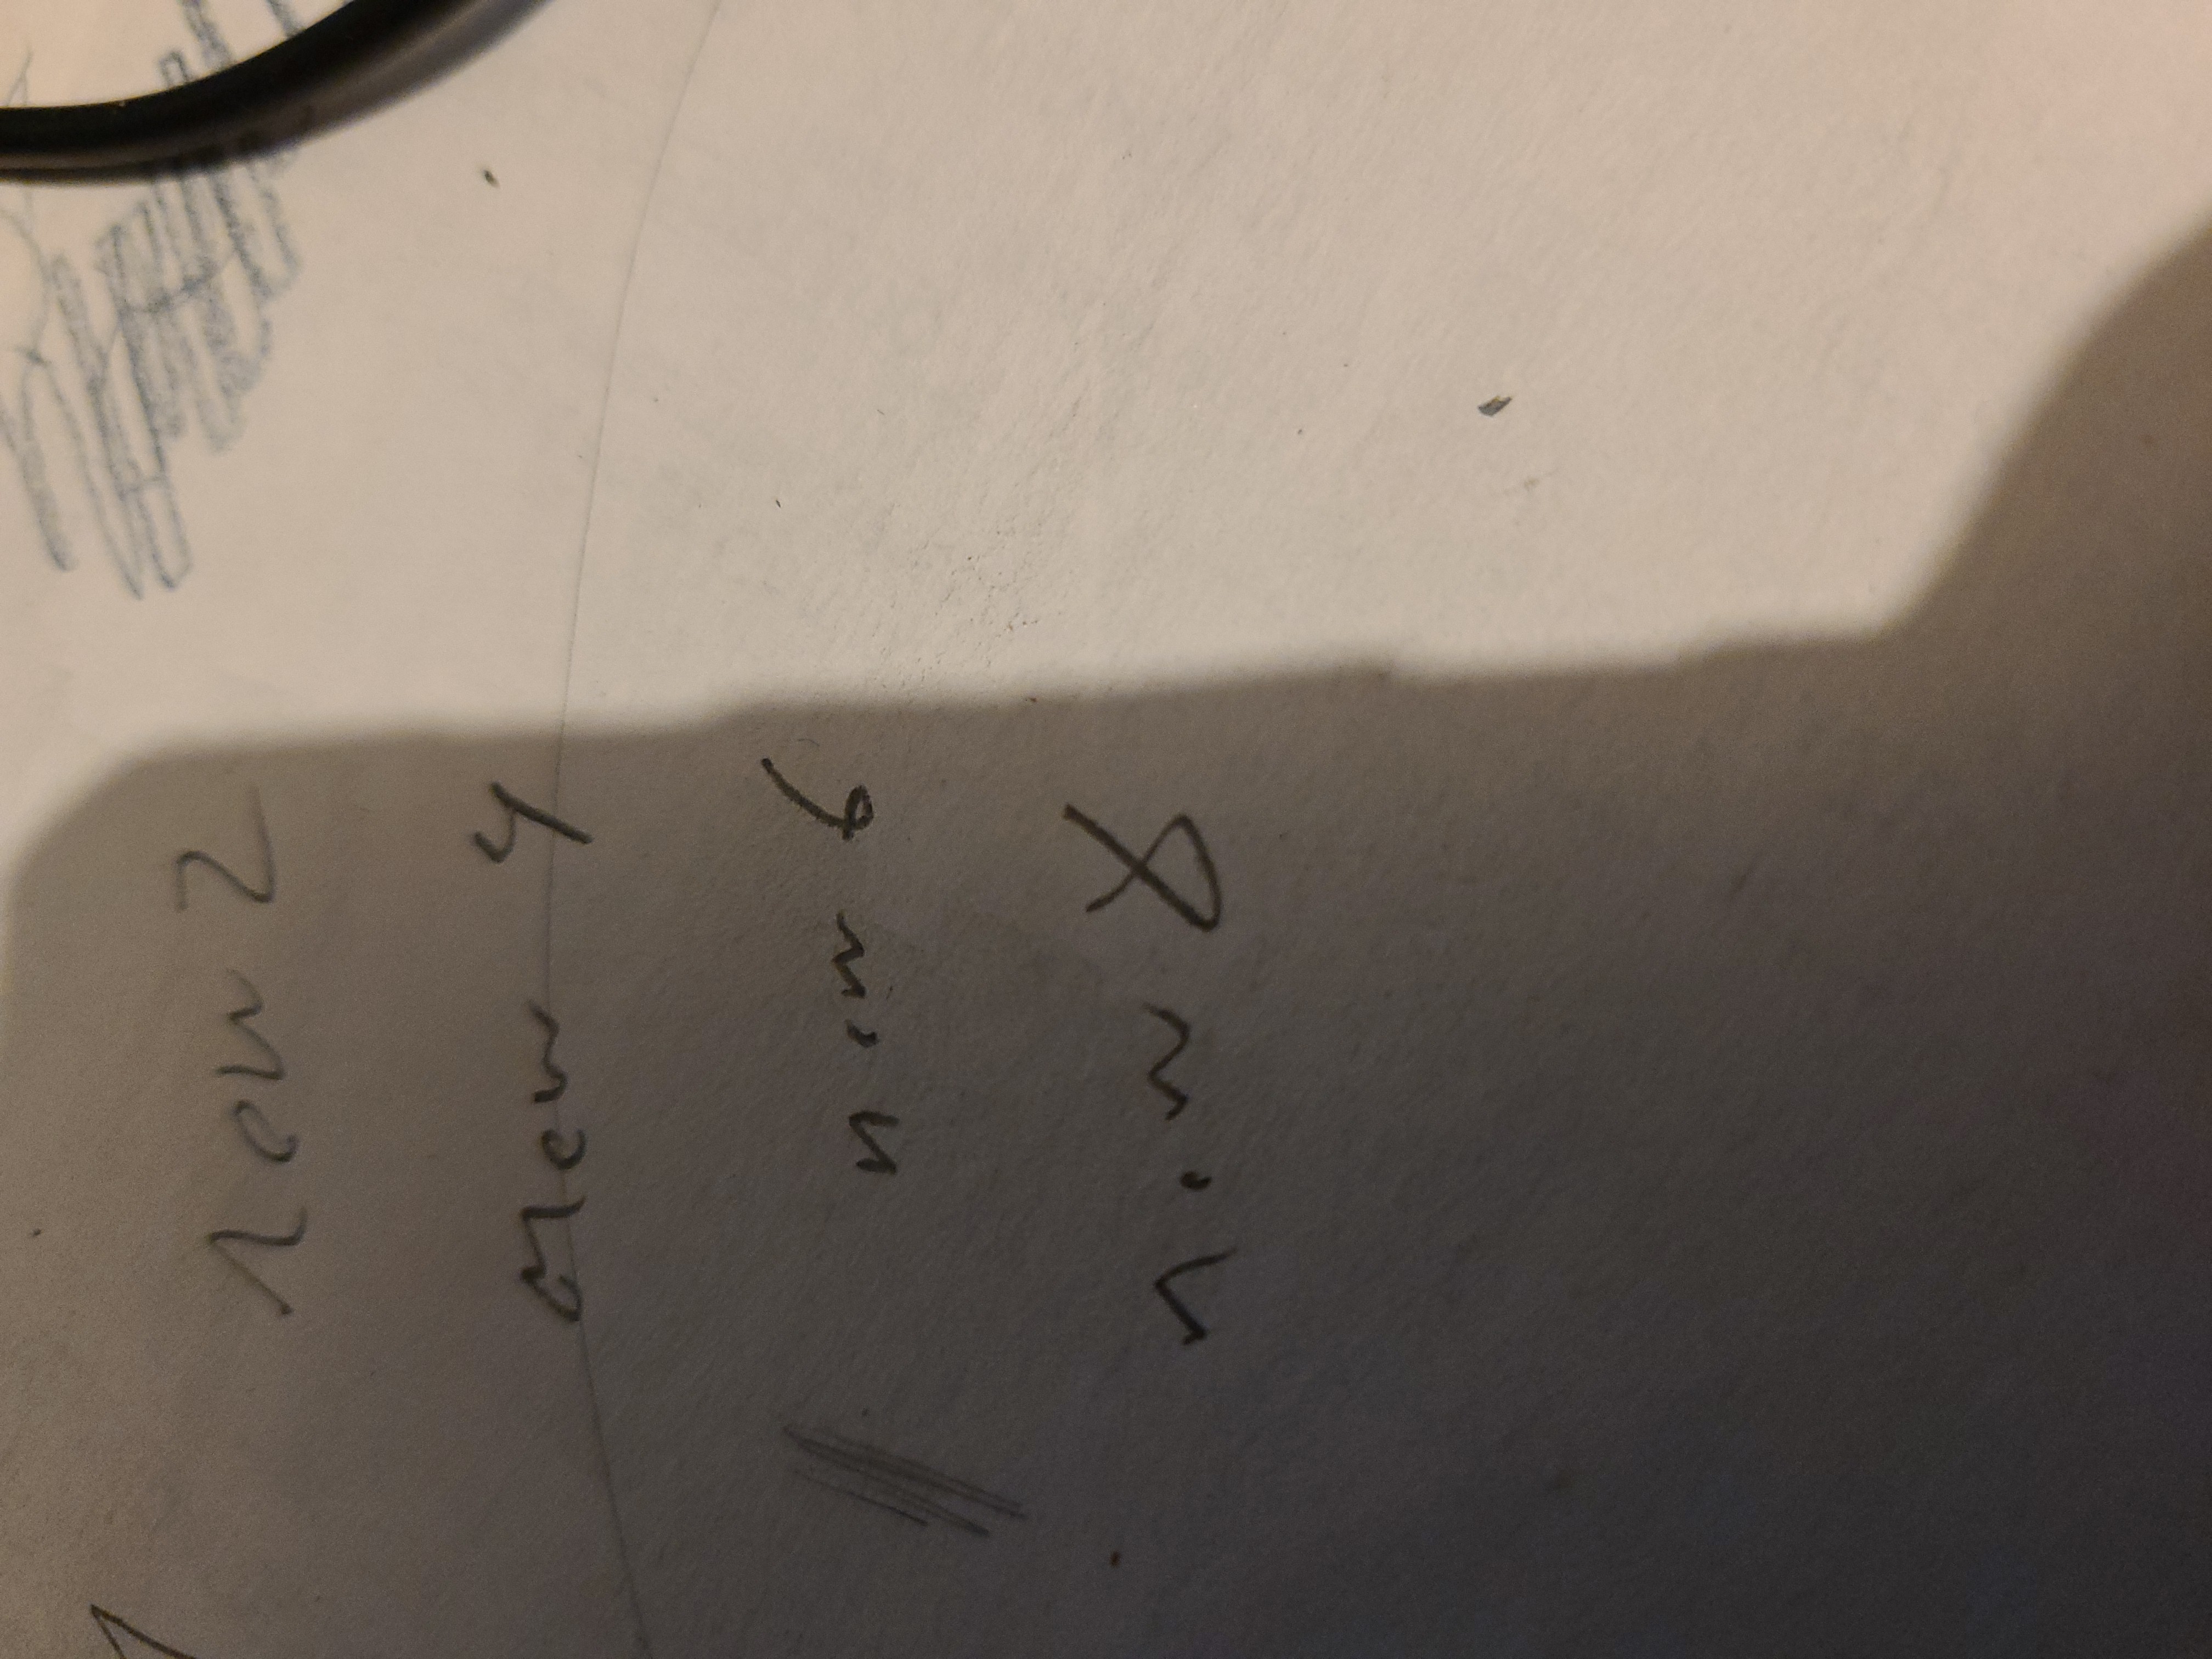 new 2
new 4
new 6
new 8